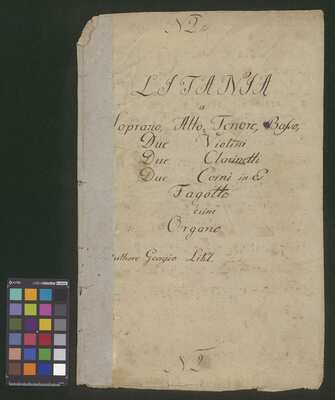 LITANIA
a
Soprano, Alto, Tenore, Basso,
Due Violini
Due Clarinetti
Due Corni in
Fagotto
con
Organo
Authore Georgio Lickl
N 2